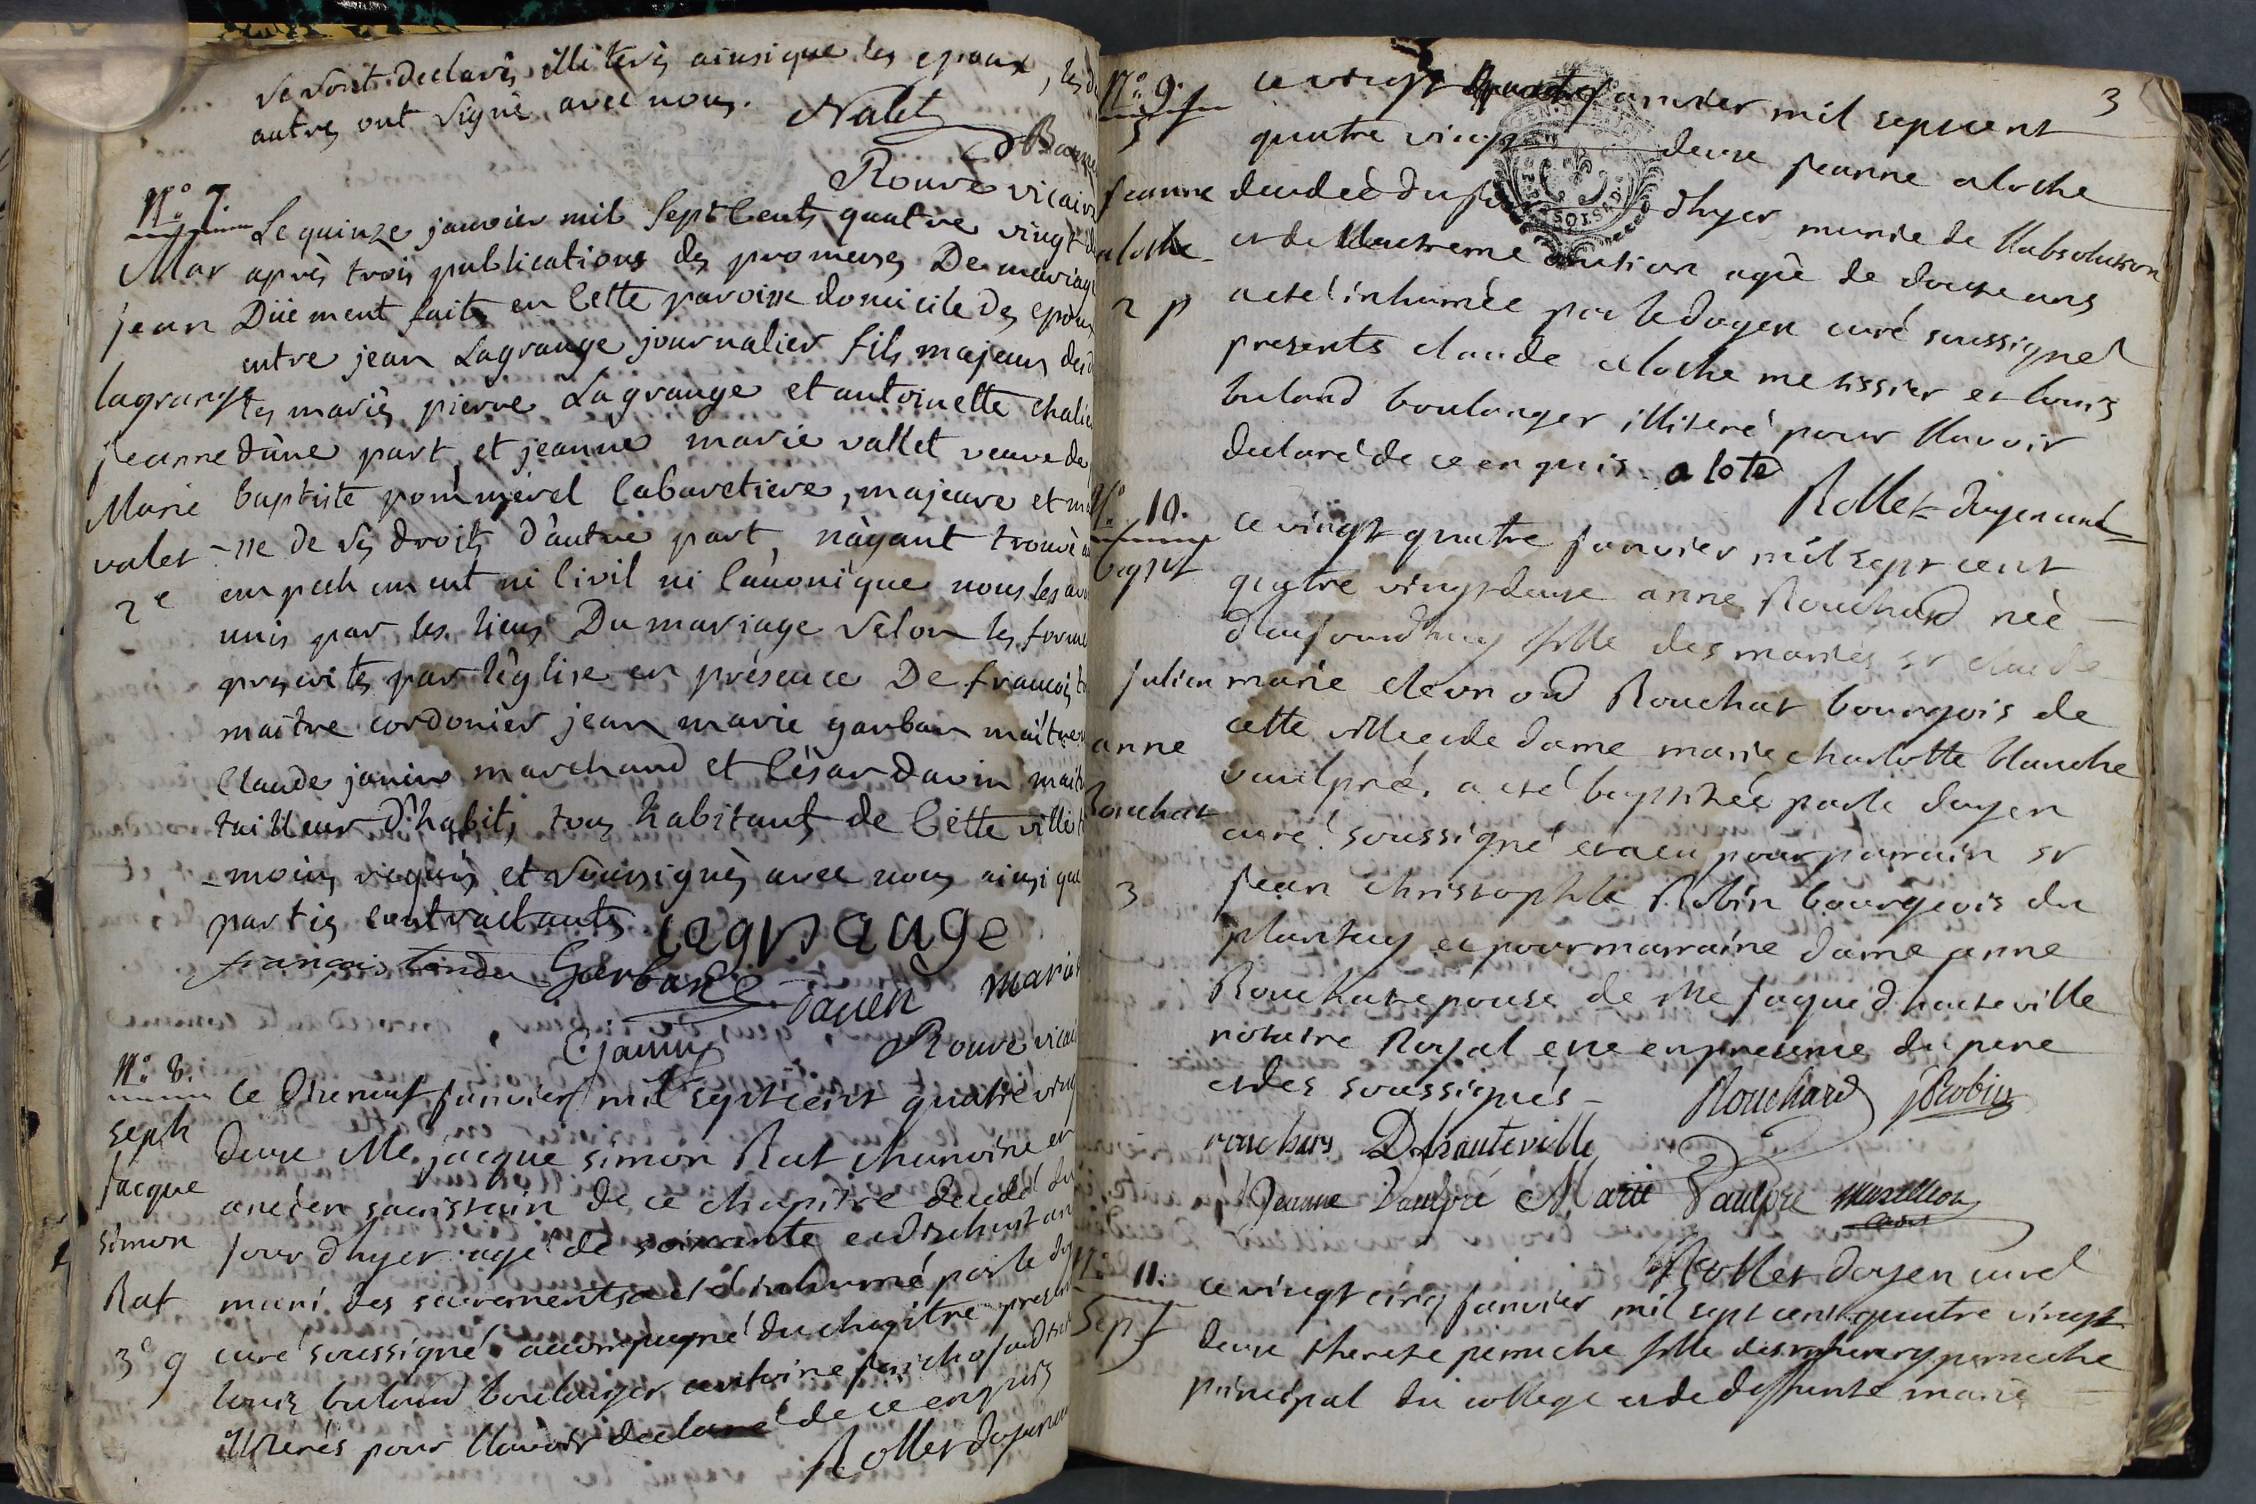 se sont declarés illiterés ainsi que les epoux, les
autres ont signé avec nous. Nalet
Rouve vicaire
N.° 7.
Mar
jean
lagrange
jeanne
Marie
valet
2e
Le quinze janvier mil Sept Cents quatre vingt
après trois publications des promesses De mariage
Düement faites en Cette paroisse domicile des epoux
entre jean Lagrange journalier fils majeur de
tes mariés pierre Lagrange et antoinette chalie
d'une part, et jeanne marie vallet veuve de
baptiste pommerel Cabaretiere, majeure et
-ne de ses droits d'autre part, n'ayant trouvé
empechement ni Civil ni Canonique nous les avo
unis par les liens Du mariage selon les forme
prescrites par l'église en présence De francois
maître cordonier jean marie garban maitre
Claude janin marchand et César davin mait
tailleur d'habits, tous habitants de Cette ville
-moins requis et soussignés avec nous ainsi que
parties Contractants lagrange
françois Garband
daven marie
Cjanin Rouve vicai
N.° 8.
seph
jacque
simon
Rat
3e g
Ce dixneuf janvier mil sept cent quatre ving
deux Me jacque simon Rat chanoine et
ancien sacristain de ce chapitre decedé du
jour d'hyer agé de soixante et dix huit an
muni des sacrements a eté inhumé par le doy
curé soussigné accompagné du chapitre present
louis buland boulanger antoine
illiterés pour l'lavoir declaré de ce enquis
Rollet doyen
3
N.° 9.
S
jeanne
aloche
2 p
ce vingt janvier mil sept cent
quatre vingt deux jeanne aloche
decedeé du jour d'hyer munie de l'labsolution
et de l'lextreme onction agée de douze ans
a eté inhumée par le doyen curé soussigné
presents claude aloche me tissier et louis
buland boulanger illiteré pour l'lavoir
declaré de ce enquis. a lote
Rollet doyen curé
N.° 10.
bapt
julien
anne
Rouchat
3
ce vingt quatre janvier mil sept cent
quatre vingt deux anne Rouchard née
d'aujourdhuy fille des mariés sr claude
marie cleonord Rouchat bourgois de
cette ville et de dame marie charlotte blanche
vaulpré, a eté baptisée par le doyen
curé soussigné et a eu pour parrain sr
jean christophle Robin bourgeois du
plantay et pour marraine dame anne
Rouchat epouse de Me jaque d'hauteville
notaire Royal etc en presence du pere
et des soussignés - Rouchard jRobin
rouchars Dehauteville
Jeanne Vaulpré Marie Vaulpré
Rollet doyen curé
N.° 11.
Sep
ce vingt cinq janvier mil sept cent quatre vingt
deux therese perruche fille de perruche
principal du college et de deffunte marie